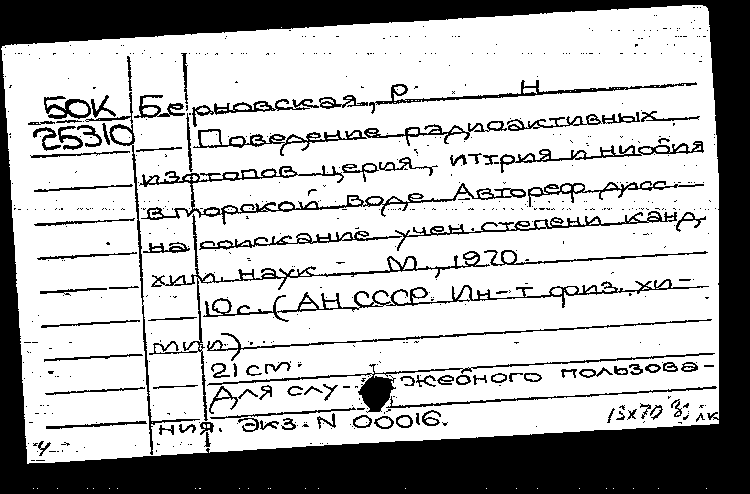 БОК Берновская, Р. Н
25310 Поведение радиоактивных
изотопов церия, иттрия и ниобия
в морской воде. Автореф дисс.
на соискание учен. степени канд.
хим. наук. М., 1970.
10 с. (АН СССР. Ин-т физ. хи-
мии)
21 см.
Для слу- жебного пользова-
ния. Экз. N 00016.